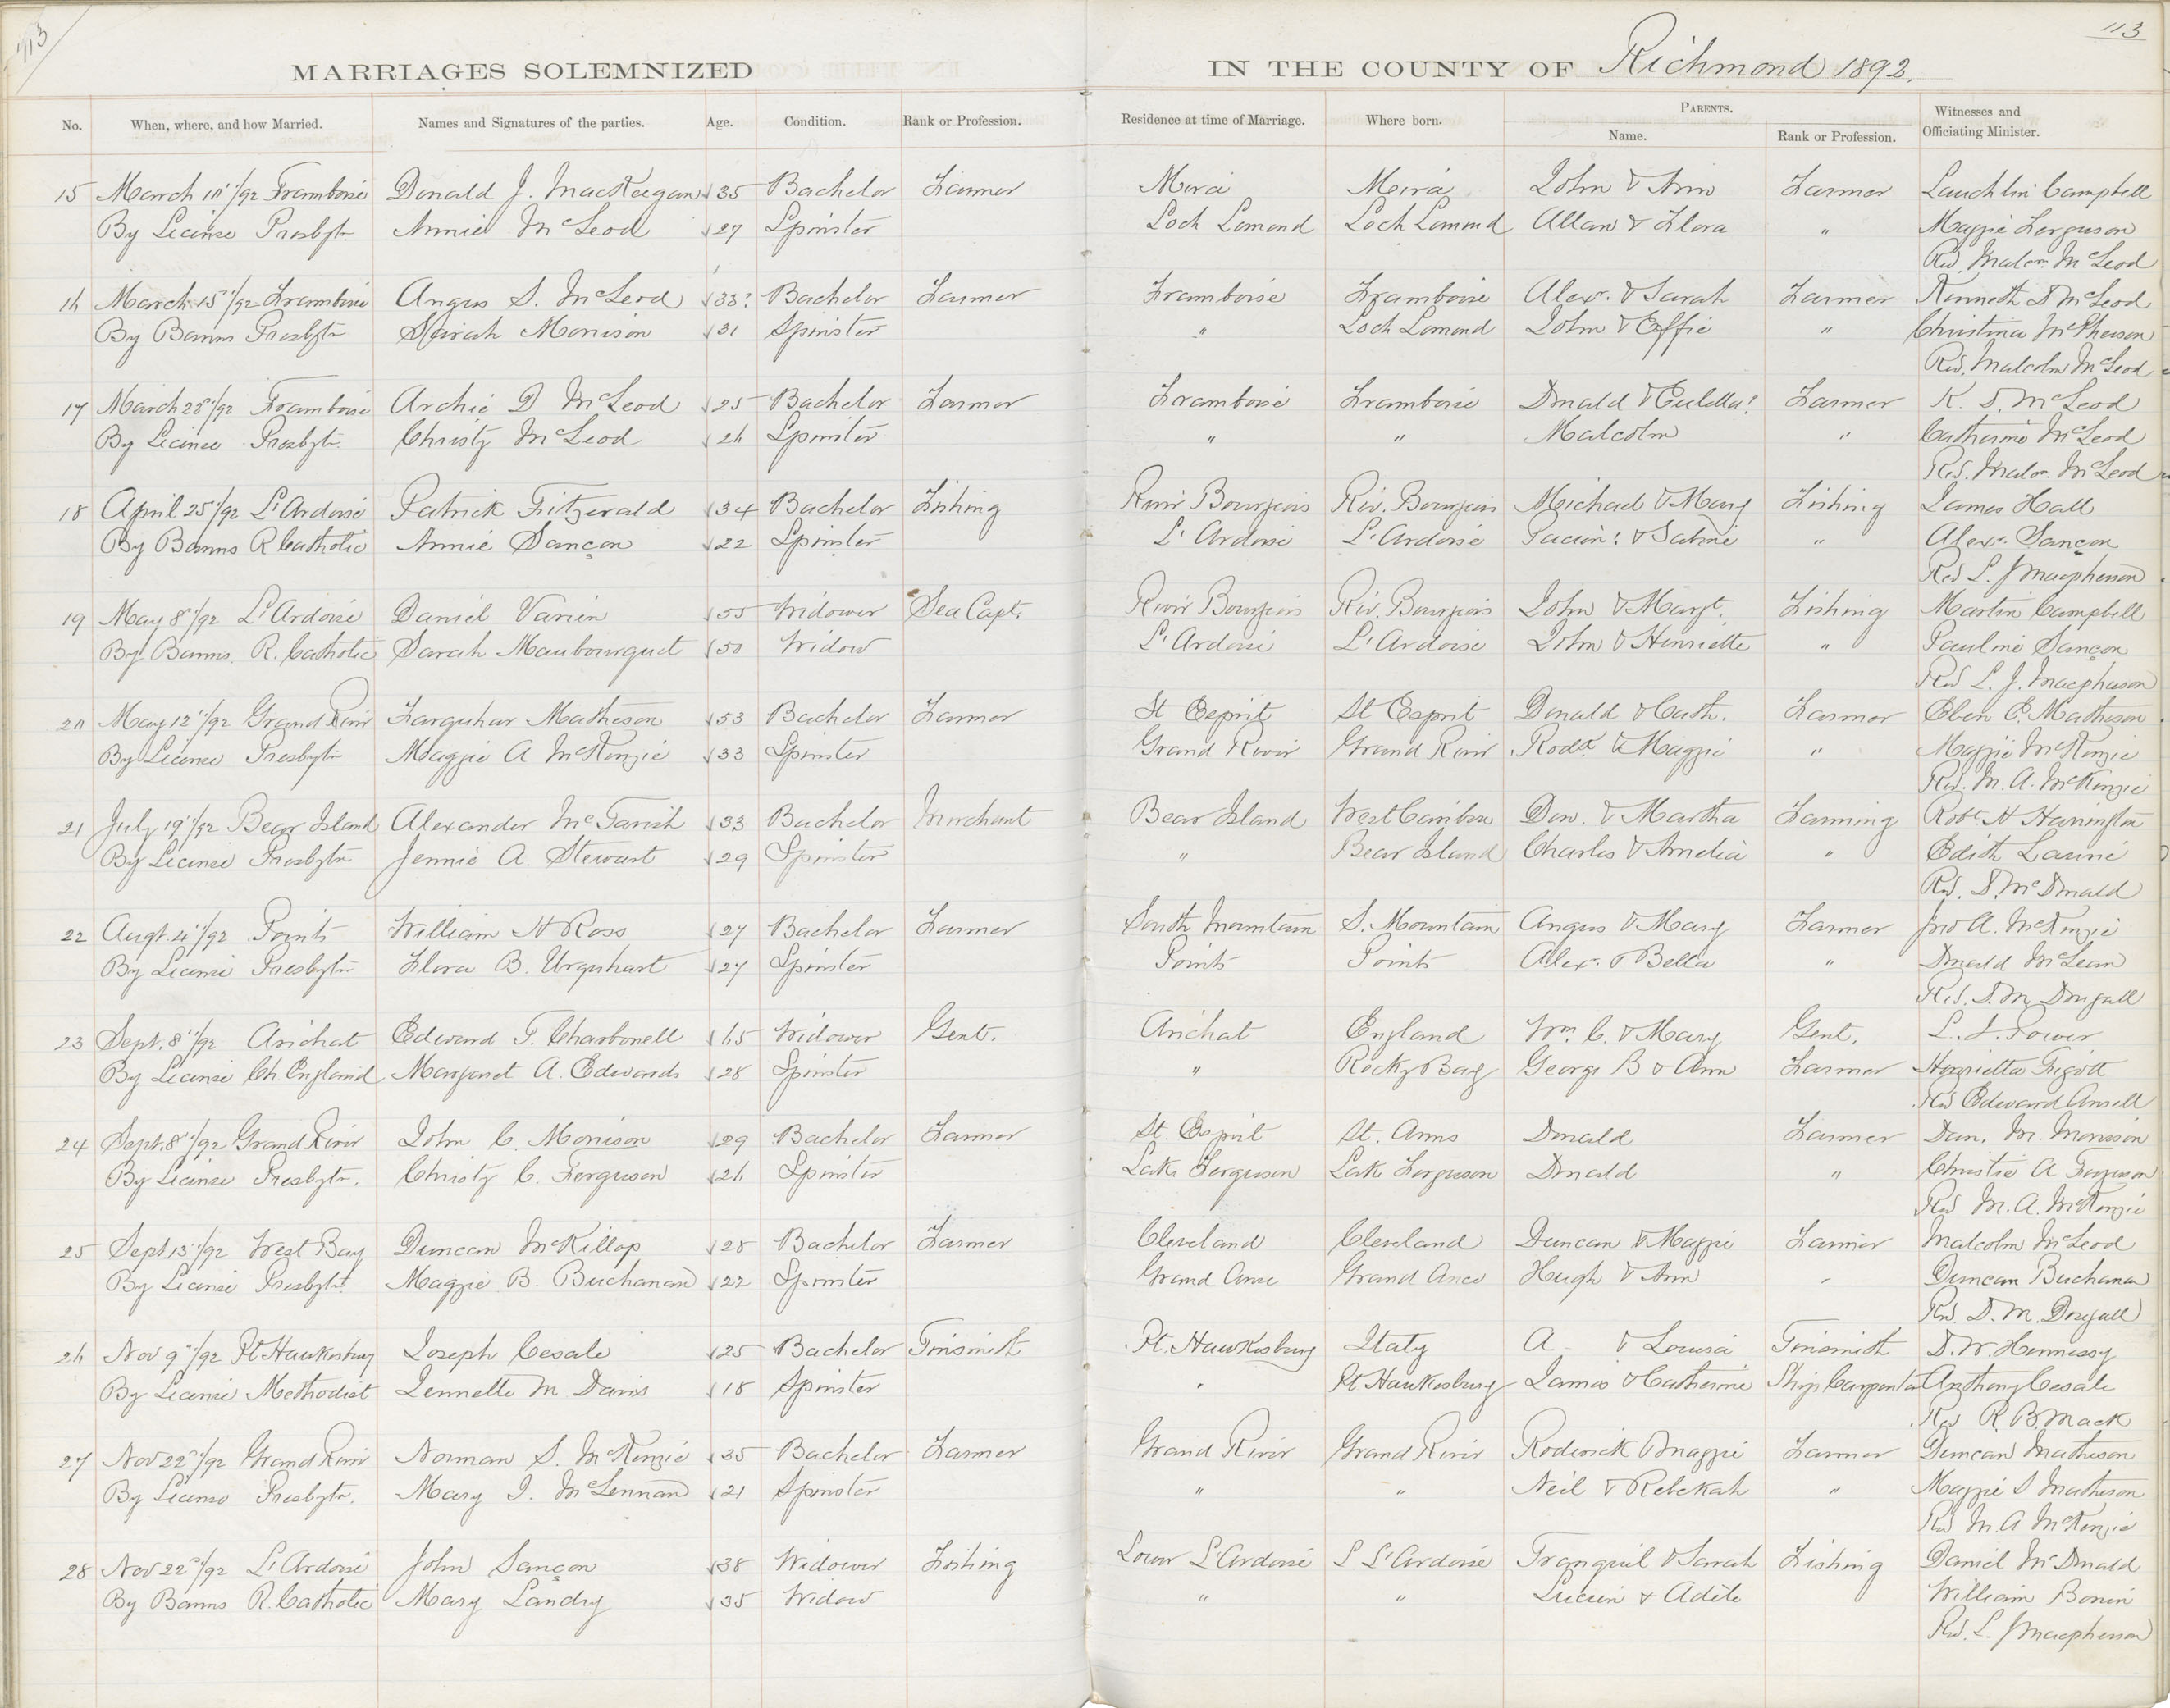 113
113
MARRIAGES SOLEMNIZED IN THE COUNTY OF Richmond 1892.
No. When, where, and how Married. Names and Signatures of the parties. Age. Condition. Rank or Profession. Residence at time of Marriage. Where born. PARENTS. Name. Rank or Profession. Witnesses and Officiating Minister.
15 March 10"/92 Framboise Donald J. MacKeegan 35 Bachelor Farmer Mira Mira John & Ann Farmer Lauchlin Campbell
By License Presbytn. Annie McLeod 27 Spinster Loch Lomond Loch Lomond Allan & Flora " Maggie Ferguson
Rev. Malcm. McLeod
16 March 15"/92 Framboise Angus S. McLeod 33? Bachelor Farmer Framboise Framboise Alexr. & Sarah Farmer Kenneth D McLeod
By Banns Presbytn Sarah Morrison 31 Spinster " Loch Lomond John & Effie " Christina McPherson
Rev. Malcolm McLeod
17 March 22"/92 Framboise Archie D McLeod 25 Bachelor Farmer Framboise Framboise Donald & Farmer K. D. McLeod
By License Presbytn. Christy McLeod 26 Spinster " " Malcolm " Catherine McLeod
Rev. Malcm. McLeod
18 April 25"/92 L'Ardoise Patrick Fitzgerald 34 Bachelor Fishing River Bourgeois Riv. Bourgeois Michael & Mary Fishing James Hall
By Banns R Catholic Annie Sançon 22 Spinster L'Ardoise L'Ardoise & Sabine " Alexr. Sançon
Rev L. J Macpherson
19 May 8"/92 L'Ardoise Daniel Varien 55 Widower Sea Capt. River Bourgeois Riv. Bourgeois John & Margt. Fishing Martin Campbell
By Banns. R. Catholic Sarah Maubourquet 50 Widow L'Ardoise L'Ardoise John & Henriette " Pauline Sançon
Rev L. J. Macpherson
20 May 12"/92 Grand River Farquhar Matheson 53 Bachelor Farmer St Esprit St Esprit Donald & Cath. Farmer Eben E. Matheson
By License Presbytn Maggie A McKenzie 33 Spinster Grand River Grand River Rodk & Maggie " Maggie McKenzie
Rev. M. A. McKenzie
21 July 19"/92 Bear Island Alexander McTavish 33 Bachelor Merchant Bear Island West Caribou Don. & Martha Farming Robt. H Harrington
By License Presbytn Jennie A. Stewart 29 Spinster " Bear Island Charles & Amelia " Edith
Rev. D. McDonald
22 Augt. 4"/92 Points William H Ross 27 Bachelor Farmer South Mountain S. Mountain Angus & Mary Farmer Jno A. McKenzie
By License Presbytn Flora B. Urquhart 27 Spinster Points Points Alexr. & Bella " Donald McLean
Rev. D. McDougall
23 Sept. 8"/92 Arichat Edward T. Charbonell 65 Widower Gent. Arichat England Wm. C. & Mary Gent. L. J. Power
By License Ch England Margaret A. Edwards 28 Spinster " Rocky Bay George B & Ann Farmer Henrietta
Rev Edward Ansell
24 Sept. 8"/92 Grand River John C. Morrison 29 Bachelor Farmer St. Esprit St. Anns Donald Farmer Dan. M. Morrison
By License Presbytn. Christy C. Ferguson 26 Spinster Lake Ferguson Lake Ferguson Donald " Christie A Ferguson
Rev M. A. McKenzie
25 Sept 13"/92 West Bay Duncan McKillop 28 Bachelor Farmer Cleveland Cleveland Duncan & Maggie Farmer Malcolm McLeod
By License Presbytn. Maggie B. Buchanan 22 Spinster Grand Anse Grand Ance Hugh & Ann " Duncan Buchanan
Rev. D. McDougall
26 Nov 9"/92 Pt Hawkesbury Joseph Cesale 25 Bachelor Tinsmith Pt. Hawkesbury Italy A & Louisa Tinsmith D. W. Hennessy
By License Methodist Jennette M Davis 18 Spinster " Pt Hawkesbury James & Catherine Ship Carpenter Anthony Cesale
Rev R. B. Mack
27 Nov 22"/92 Grand River Norman S. McKenzie 35 Bachelor Farmer Grand River Grand River Roderick & Maggie Farmer Duncan Matheson
By License Presbytn. Mary J. McLennan 21 Spinster " " Neil & Rebekah " Maggie S Matheson
Rev M. A McKenzie
28 Nov 22"/92 L'Ardoise John Sançon 38 Widower Fishing Lower L'Ardoise L L'Ardoise Tranquil & Sarah Fishing Daniel McDonald
By Banns R. Catholic Mary Landry 35 Widow " " Lucien & Adèle William Bonin
Rev. L. J Macpherson